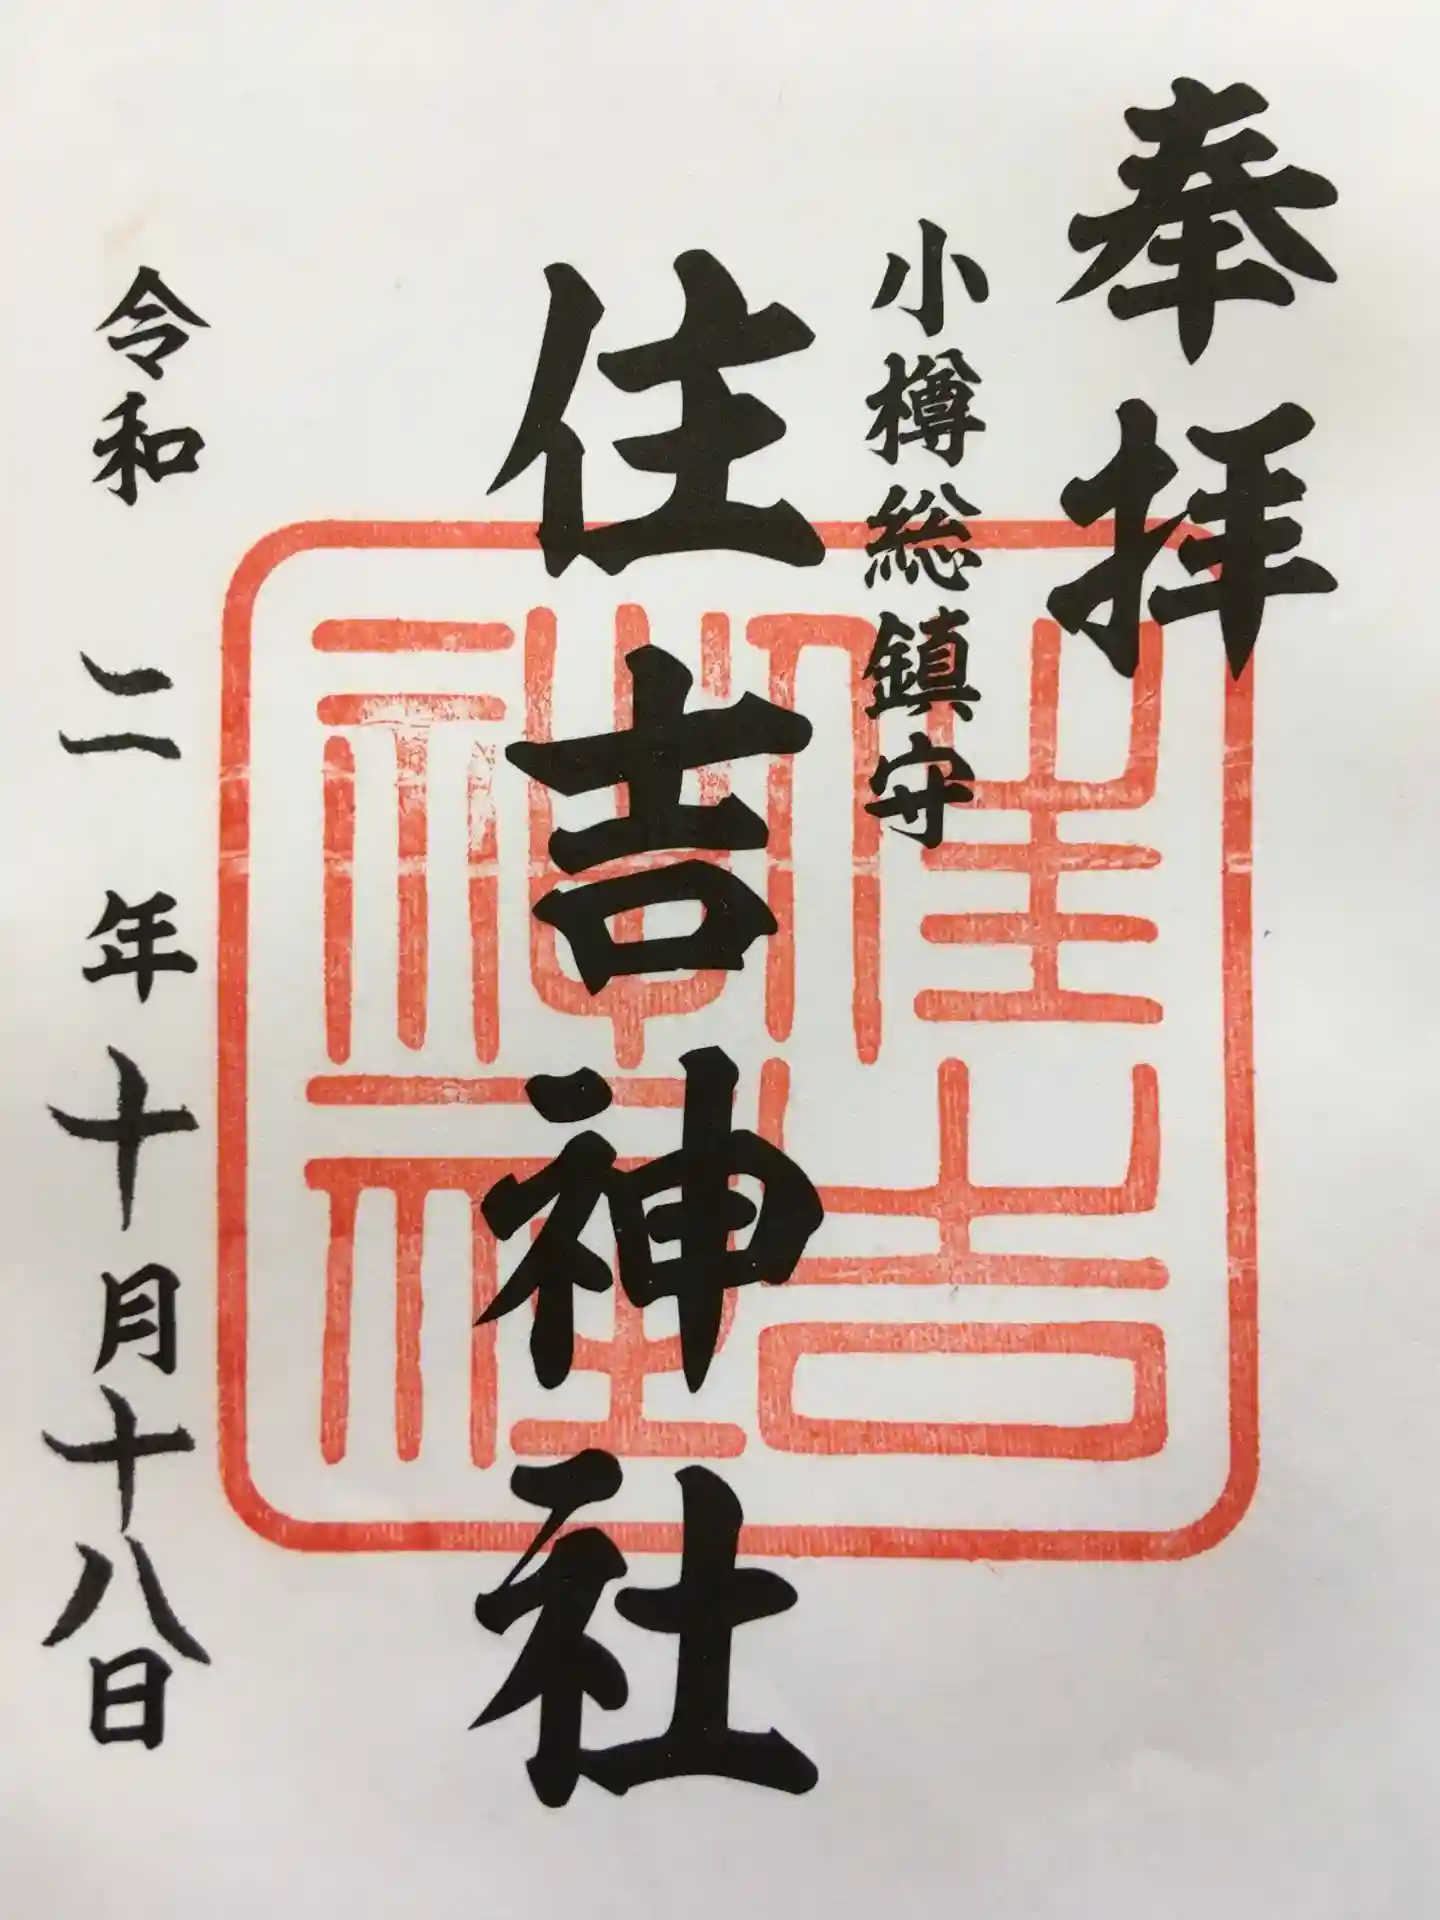 奉拝
小樽総鎮守
住吉神社
住吉
神社
令和二年十月十八日